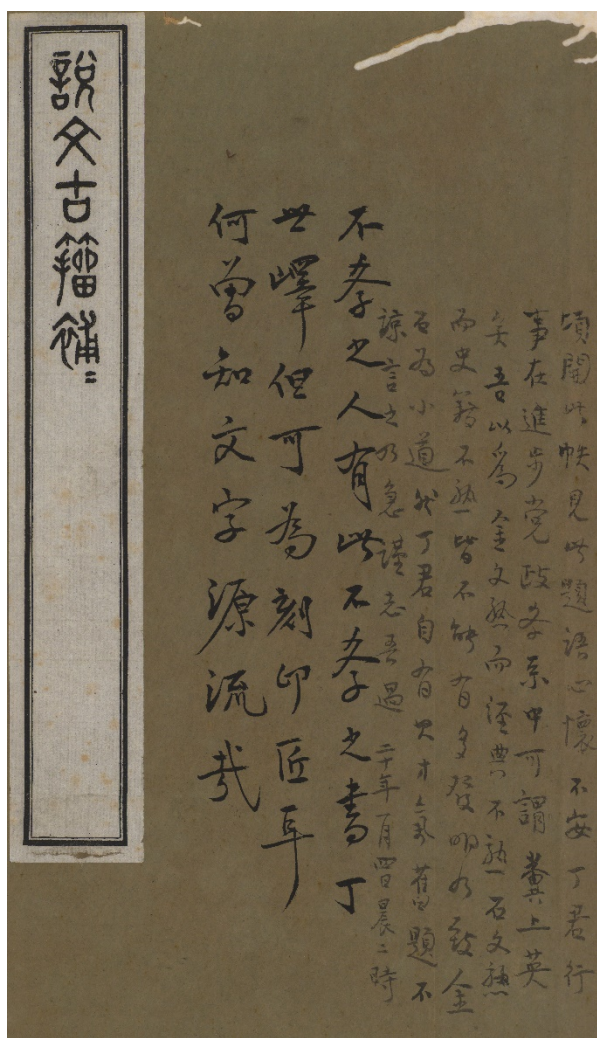 頃開此帙見此題語心懷不安丁君行
事在進步党政客系中可謂糞上英
矣吾以為金文熟而經典不熟石文熟
而史籍不熟皆不能有多發明如致金
石為小道然丁君自有其才氣舊題不
諒言之乃急謹志吾過 二十年一月四日晨二時
不孝之人有此不孝之書丁
世嶧但可為刻印匠耳
何曾知文字源流哉
說文古籀補二